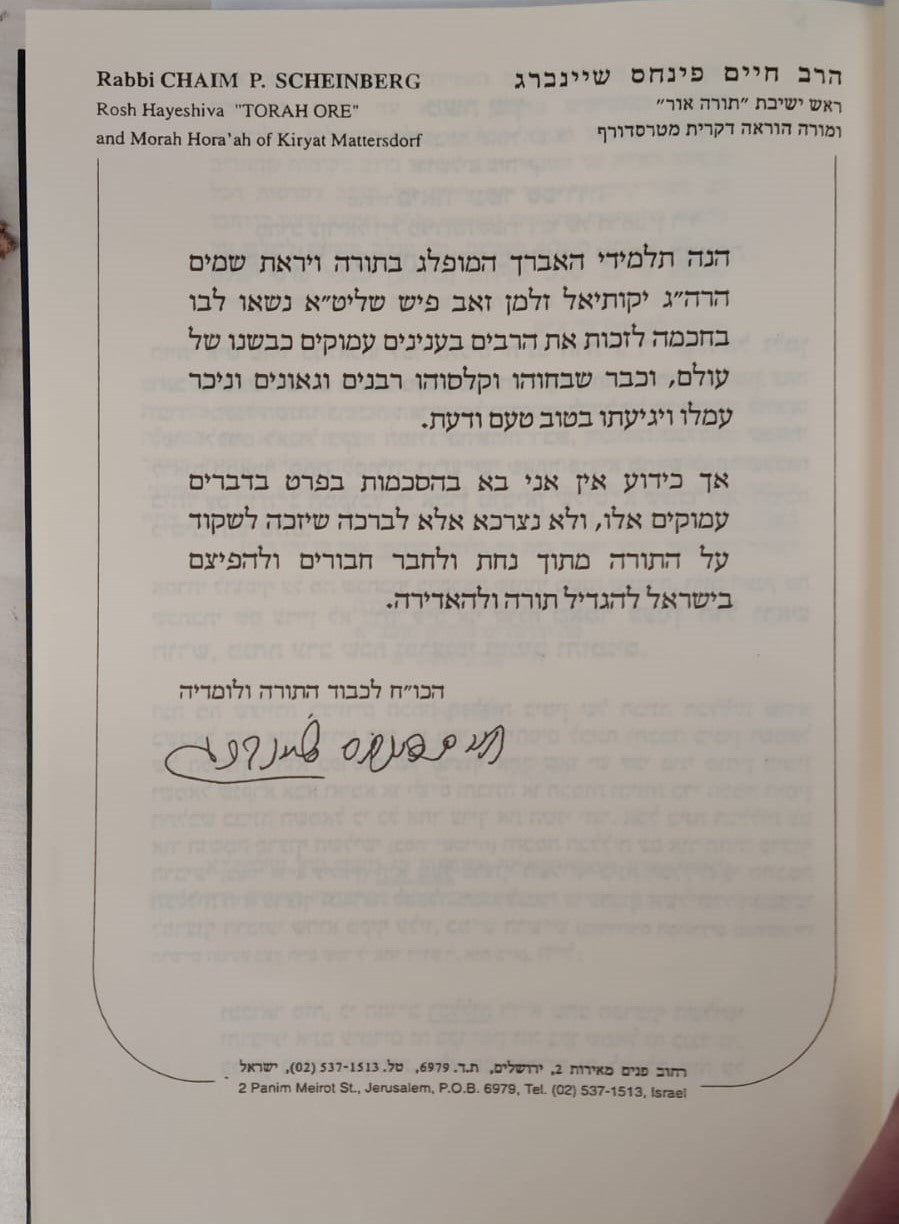 Rabbi CHAIM P. SCHEINBERG
Rosh Hayeshiva "TORAH ORE"
and Morah Hora'ah of Kiryat Mattersdorf
הרב חיים פינחס שיינברג
ראש ישיבת "תורה אור"
ומורה הוראה דקרית מטרסדורף
הנה תלמידי האברך המופלג בתורה ויראת שמים
הרה"ג יקותיאל זלמן זאב פיש שליט"א נשאו לבו
בחכמה לזכות את הרבים בענינים עמוקים כבשנו של
עולם, וכבר שבחוהו וקלסוהו רבנים וגאונים וניכר
עמלו ויגיעתו בטוב טעם ודעת.
אך כידוע אין אני בא בהסכמות בפרט בדברים
עמוקים אלו, ולא נצרכא אלא לברכה שיזכה לשקוד
על התורה מתוך נחת ולחבר חבורים ולהפיצם
בישראל להגדיל תורה ולהאדירה.
הכו"ח לכבוד התורה ולומדיה
חיים פינחס שיינברג
רחוב פנים מאירות 2, ירושלים, ת.ד. 6979, טל. 537-1513 (02), ישראל
2 Panim Meirot St., Jerusalem, P.O.B. 6979, Tel. (02) 537-1513, Israel